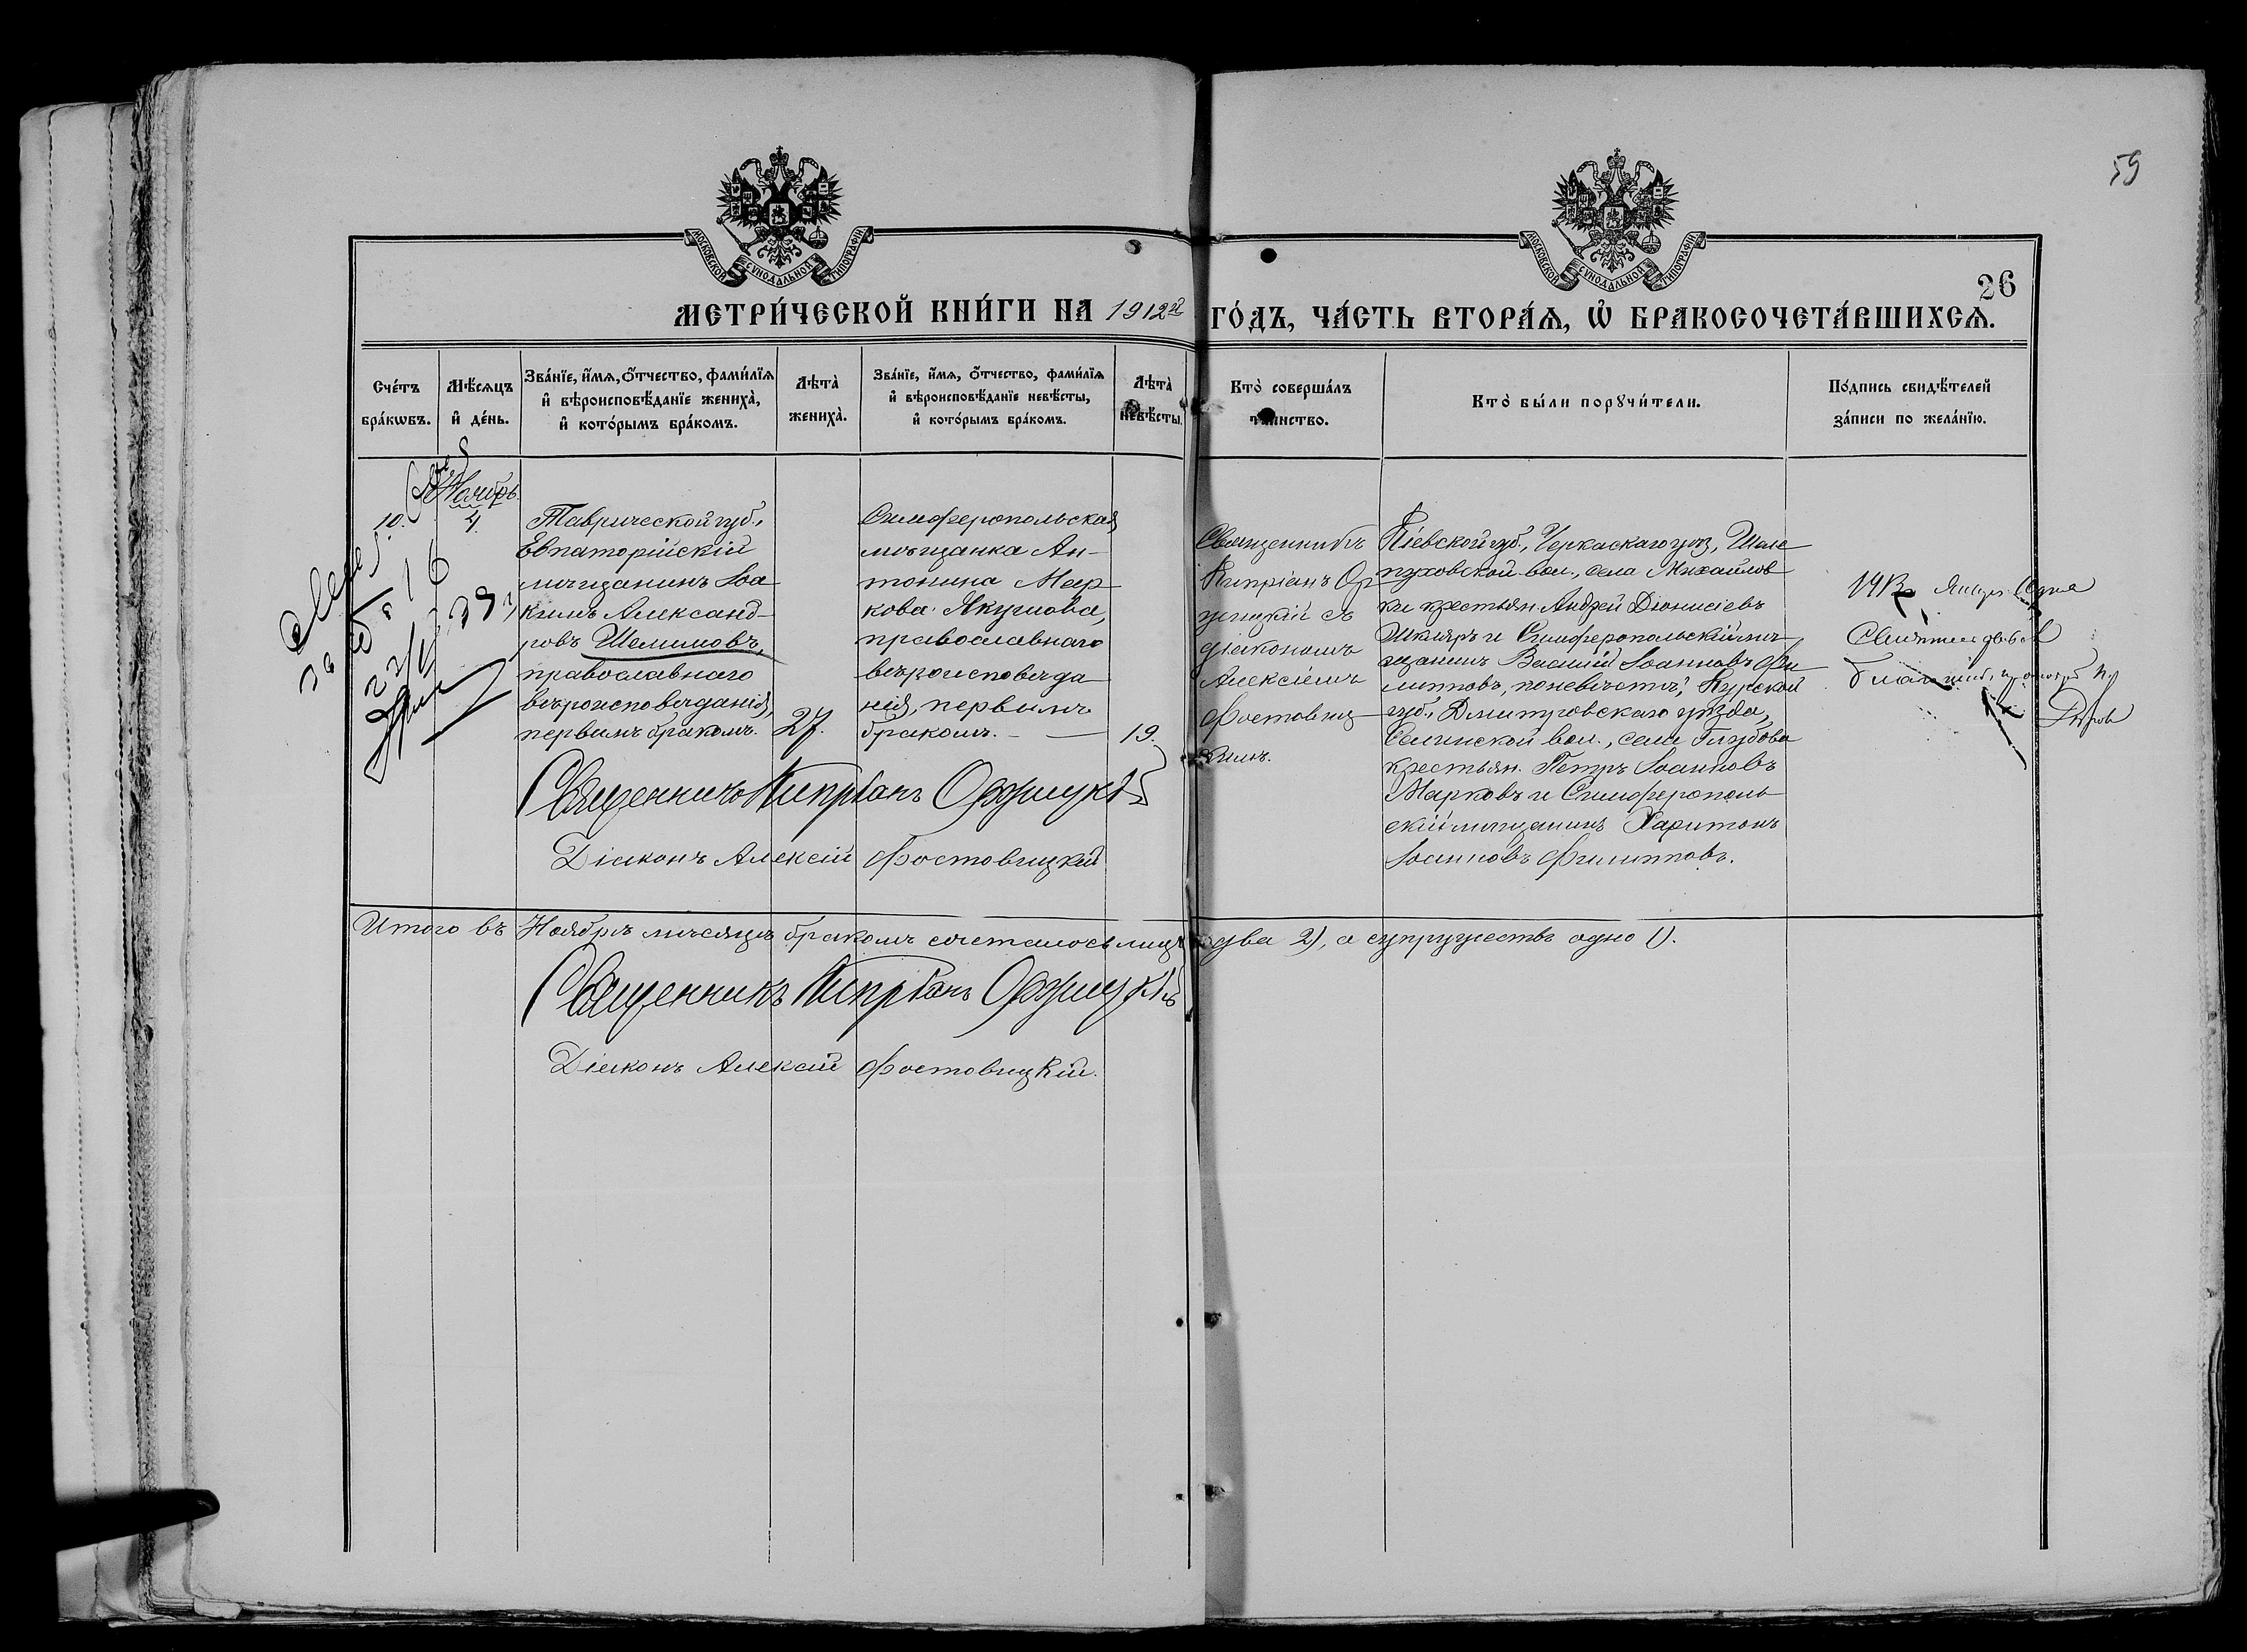 59
МОСКОВСКОЙ СѴНОДАЛЬНОЙ ТИПОГРАФІИ
МОСКОВСКОЙ СѴНОДАЛЬНОЙ ТИПОГРАФІИ
26
МЕТРИ́ЧЕСКОЙ КНИ́ГИ НА 1912й ГО́ДЪ, ЧА́СТЬ ВТОРА́Ѧ, Ѽ БРАКОСОЧЕТА́ВШИХСѦ.
Сче́тъ
бра́кѡвъ.
Мѣ́сѧцъ
и҆ де́нь.
Зва́нїе, и҆́мѧ, ѻ҆́тчество, фами́лїѧ
и҆ вѣроисповѣ́данїе жениха̀,
и҆ кото́рымъ бра́комъ.
Лѣ́та̀
жениха̀.
Зва́нїе, и҆́мѧ, ѻ҆́тчество, фами́лїѧ
и҆ вѣроисповѣ́данїе невѣ́сты,
и҆ кото́рымъ бра́комъ.
Лѣ́та̀
невѣ́сты.
Кто̀ соверша́лъ
та́инство.
Кто̀ бы́ли порꙋчи́тели.
По́дпись свидѣ́телей
за́писи по жела́нїю.
10.
Ноябрь.
4.
Таврической губ.,
Евпаторійскій
мѣщанинъ Іоа
кимъ Александ-
ровъ Шелимовъ,
православнаго
вѣроисповѣданія,
первымъ бракомъ.
27.
Симферопольская
мѣщанка Ан-
тонина Мар
кова Якушова,
православнаго
вѣроисповѣда
нія, первымъ
бракомъ.
19.
Священникъ
Кипріанъ Ор
жицкій съ
діакономъ
Алексіемъ
Фостовиц
кимъ.
Кіевской губ., Черкаскаго уѣз., Шеле
пуховской вол., села Михайлов
ки крестьян. Андрей Діонисіевъ
Шкляръ и Симферопольскій мѣ
щанинъ Василій Іоанновъ Фи
липповъ, по невѣстѣ: Курской
губ., Дмитровскаго уѣзда,
Селинской вол., села Глубова
крестьян. Петръ Іоанновъ
Марковъ и Симферополь
скій мѣщанинъ Харитонъ
Іоанновъ Филипповъ.
Священникъ Кипріанъ Оржицкій
Діаконъ Алексій Фостовицкій
Итого въ Ноябрѣ мѣсяцѣ бракомъ сочеталось лицъ два 2), а супружествъ одно 1).
Священникъ Кипріанъ Оржицкій
Діаконъ Алексій Фостовицкій.